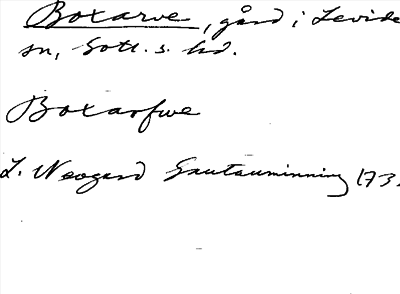 Boxarve, gård i Levide
sn, Gotl. s. hd.
Boxarfwe
L. Neogard Gautauminning 173